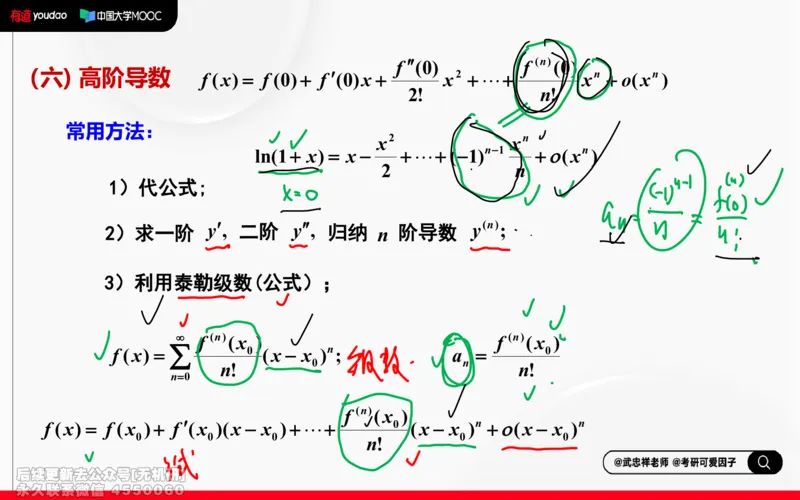 有道 youdao 中国大学MOOC
(六) 高阶导数 f(x) = f(0) + f′(0)x + f″(0)/2! x² + ⋯ + f⁽ⁿ⁾(0)/n! xⁿ + o(xⁿ)
常用方法：
ln(1 + x) = x − x²/2 + ⋯ + (−1)ⁿ⁻¹ xⁿ/n + o(xⁿ)
1）代公式；
x=0
aₙ = (−1)ⁿ⁻¹/n = f⁽ⁿ⁾(0)/n!
2）求一阶 y′, 二阶 y″, 归纳 n 阶导数 y⁽ⁿ⁾;
3）利用泰勒级数(公式)；
f(x) = ∑_{n=0}^{∞} f⁽ⁿ⁾(x₀)/n! (x − x₀)ⁿ; 级数. aₙ = f⁽ⁿ⁾(x₀)/n!
f(x) = f(x₀) + f′(x₀)(x − x₀) + ⋯ + f⁽ⁿ⁾(x₀)/n! (x − x₀)ⁿ + o(x − x₀)ⁿ
@武忠祥老师 @考研可爱因子
后续更新去公众号[无机川]
永久联系微信 4550060